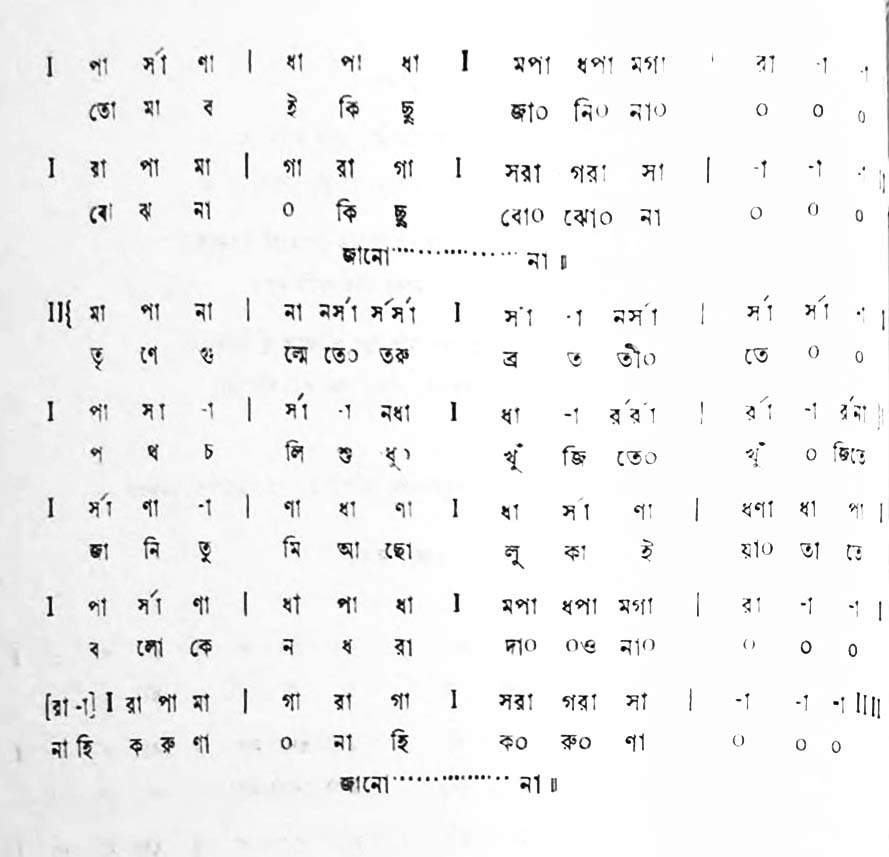 I পা র্সা ণা | ধা পা ধা I মপা ধপা মগা | রা -া -া
তো মা ব ই কি ছু জা০ নি০ না০ ০ ০ ০
I রা পা মা | গা রা গা I সরা গরা সা | -া -া -া ||
বো ঝ না ০ কি ছু বো০ ঝো০ না ০ ০ ০
জানো·················· না ॥
II{ মা পা না | না নর্সা র্সর্সা I র্সা -া নর্সা | র্সা র্সা -া |
তৃ ণে গু ল্মে তে০ তরু ব্র ত তী০ তে ০ ০
I পা সা -া | র্সা -া নধা I ধা -া র্রর্রা | র্রা -া র্রনা |
প থ চ লি শু ধু০ খুঁ জি তে০ খুঁ ০ জিতে
I র্সা ণা -া | ণা ধা ণা I ধা র্সা ণা | ধণা ধা পা |
জা নি তু মি আ ছো লু কা ই য়া০ তা তে
I পা র্সা ণা | ধা পা ধা I মপা ধপা মগা | রা -া -া |
ব লো কে ন ধ রা দা০ ০ও না০ ০ ০ ০
[রা -া] I রা পা মা | গা রা গা I সরা গরা সা | -া -া -া IIII
না হি ক রু ণা ০ না হি ক০ রু০ ণা ০ ০ ০
জানো·················· না ॥